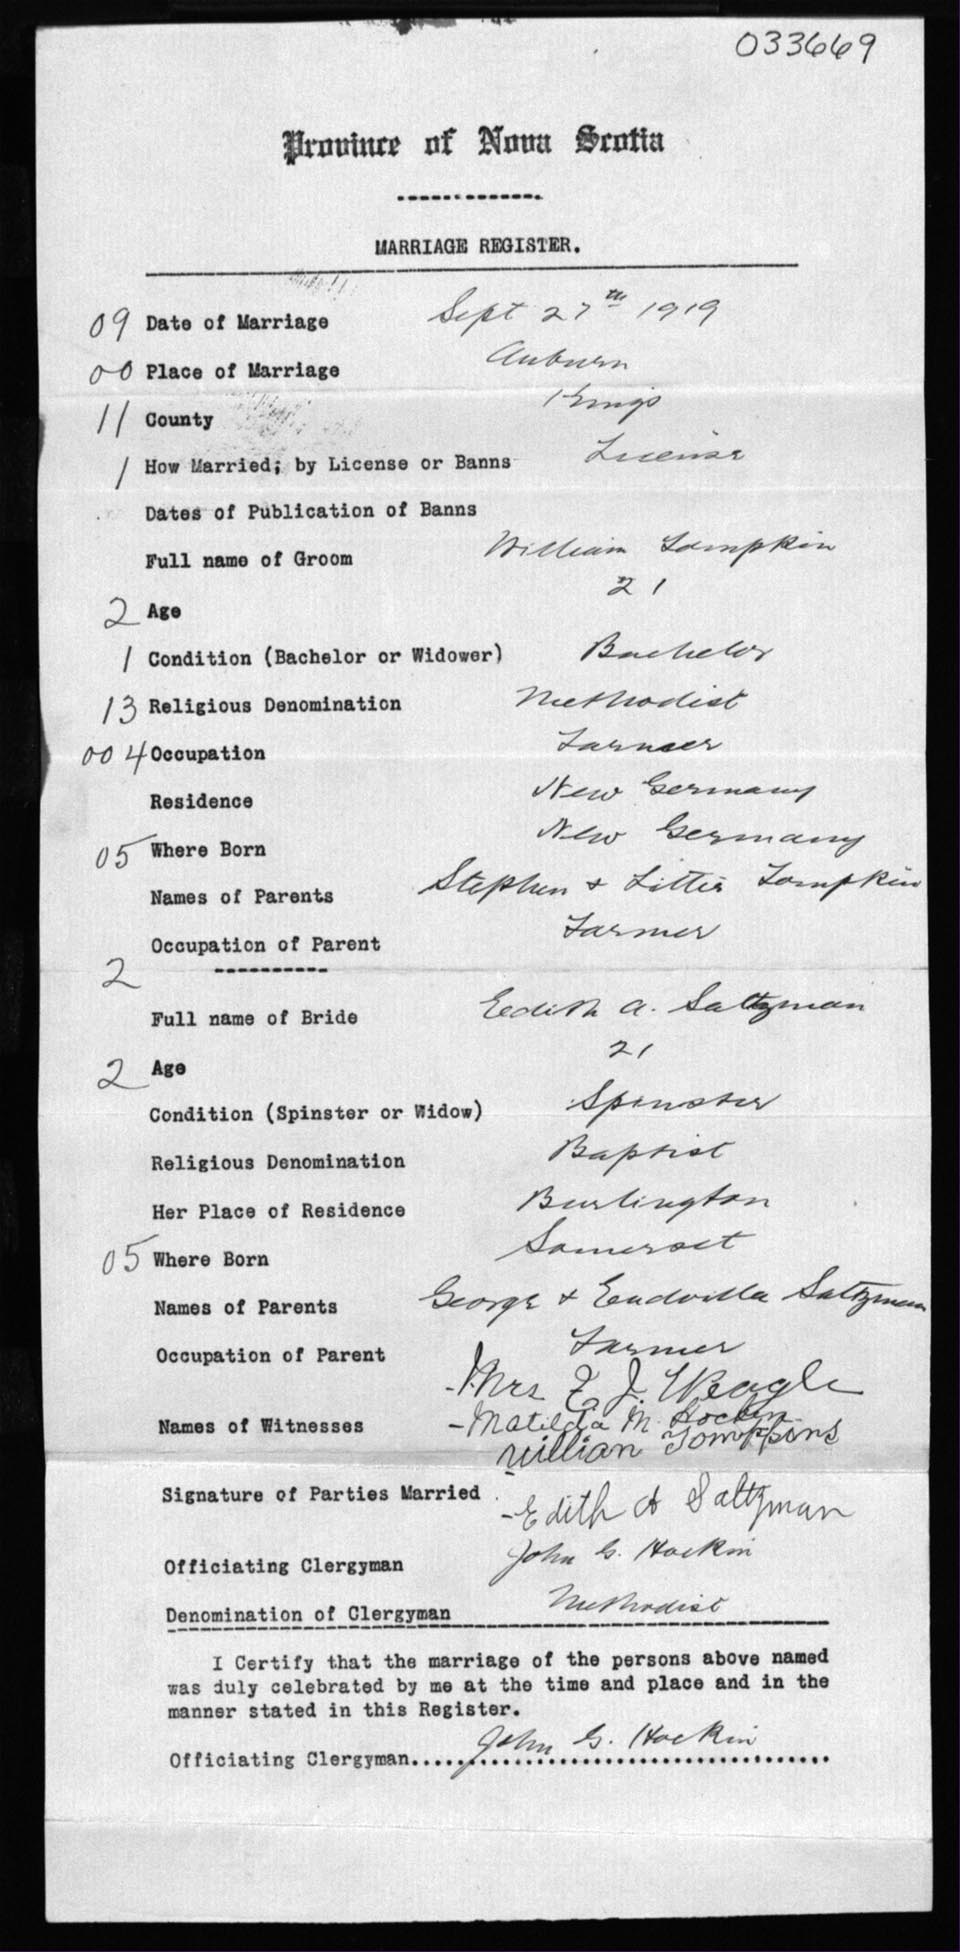 033669
Province of Nova Scotia
MARRIAGE REGISTER.
09 Date of Marriage Sept 27th 1919
00 Place of Marriage Auburn
11 County Kings
1 How Married; by License or Banns License
Dates of Publication of Banns
Full name of Groom William Tompkin
2 Age 21
1 Condition (Bachelor or Widower) Bachelor
13 Religious Denomination Methodist
004 Occupation Farmer
Residence New Germany
05 Where Born New Germany
Names of Parents Stephen & Tompkin
Occupation of Parent Farmer
2
Full name of Bride Edith A. Saltzman
2 Age 21
Condition (Spinster or Widow) Spinster
Religious Denomination Baptist
Her Place of Residence Burlington
05 Where Born Somerset
Names of Parents George & Saltzman
Occupation of Parent Farmer
-Mrs J. Weagle
Names of Witnesses -Matilda M. Hockin
William Tompkins
Signature of Parties Married
-Edith A Saltzman
Officiating Clergyman John G. Hockin
Denomination of Clergyman Methodist
I Certify that the marriage of the persons above named
was duly celebrated by me at the time and place and in the
manner stated in this Register.
Officiating Clergyman John G. Hockin